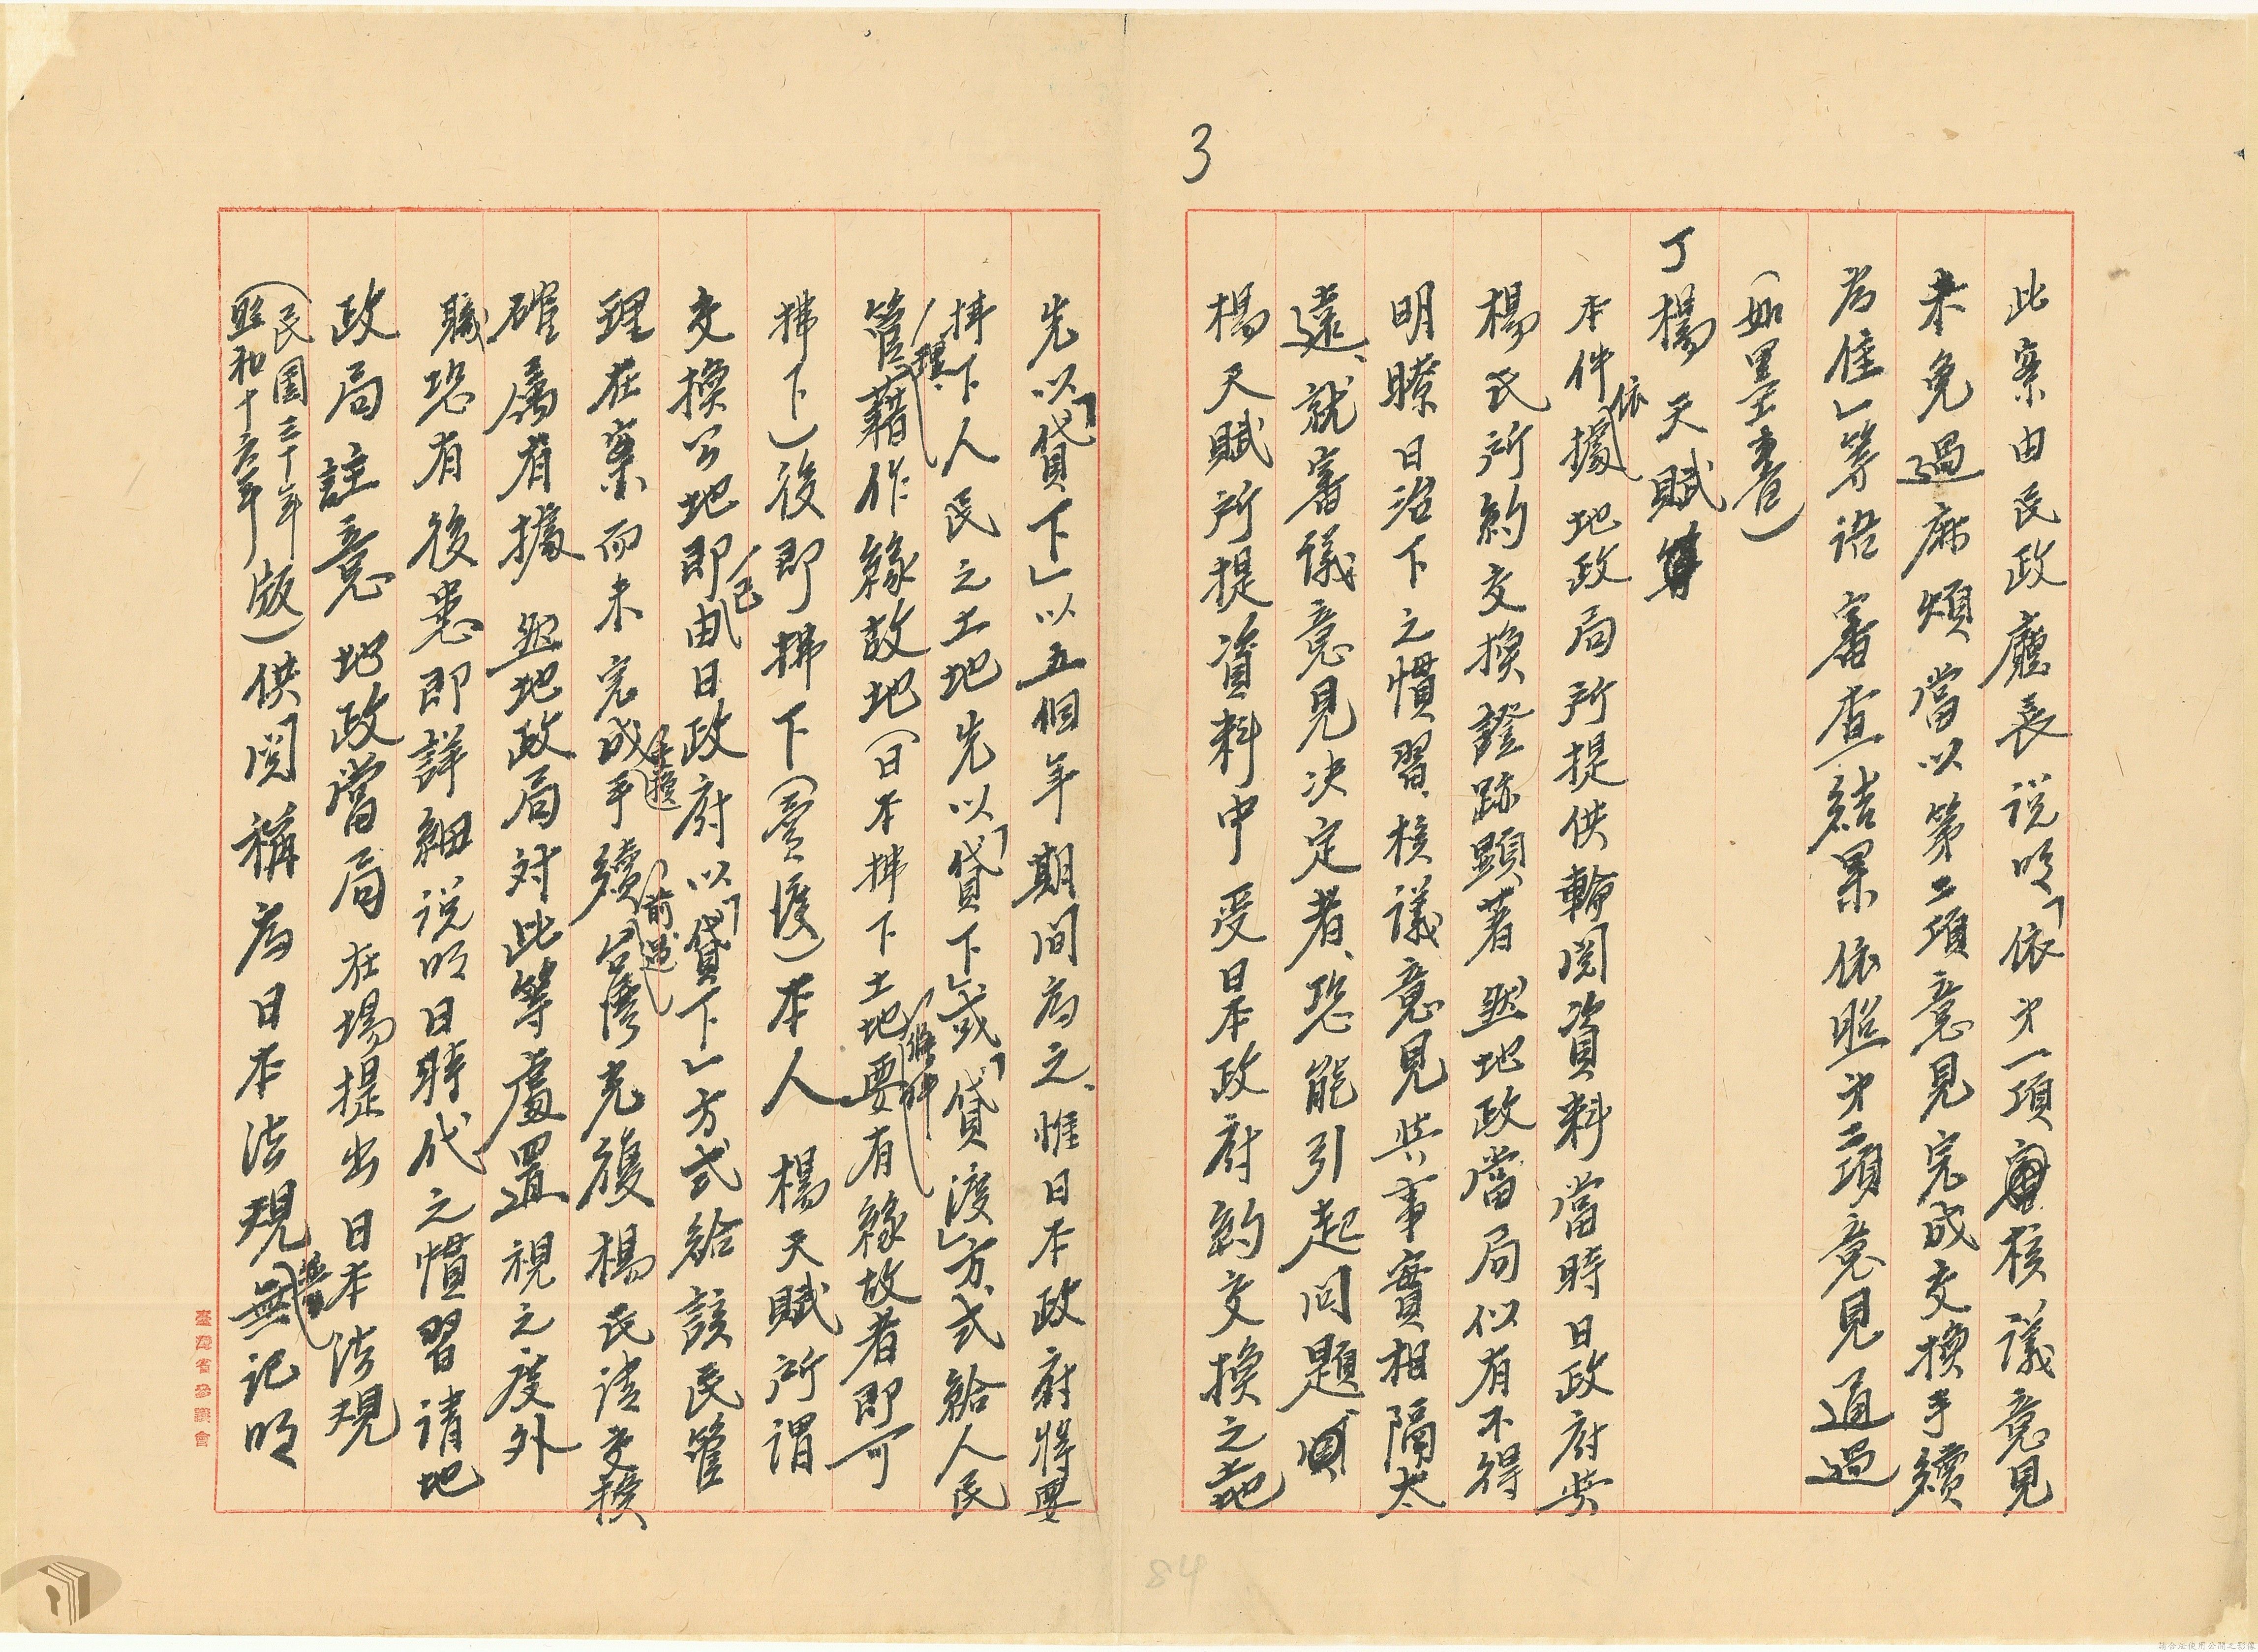 3
此案由民政廳長說明「依第一項審核議意見
未免過麻煩當以第二項意見完成交換手續
為佳」等語審查結果依照第二項意見通過
(如墨書)
丁楊天賦等
本件依據地政局所提供輪閱資料當時日政府與
楊氏所約交換證跡顕著然地政當局似有不得
明瞭日治下之慣習、核議意見與事實相隔太
遠、就審議意見決定者、恐能引起问題
楊天賦所提資料中受日本政府約交換之土地
先以「貸下」以五個年期间為之、惟日本政府將要
拂下人民之土地先以「貸下」或「貸渡」方式給人民
管理藉作緣故地(日本拂下土地要條件有緣故者即可
拂下)後即拂下(賣渡)本人楊天賦所謂
交換公地即已由日政府以「貸下」方式給該民管
理在案而未完成手續前遇台灣光復楊民請交換
確属有據然地政局対此等處置視之度外
職恐有後患即詳細說明日時代之慣習請地
政局註意地政當局在場提出日本法規
(民国三十年
昭和十六年版)供閱稱為日本法規無記明
臺灣省參議會
84
請合法使用公開之影像